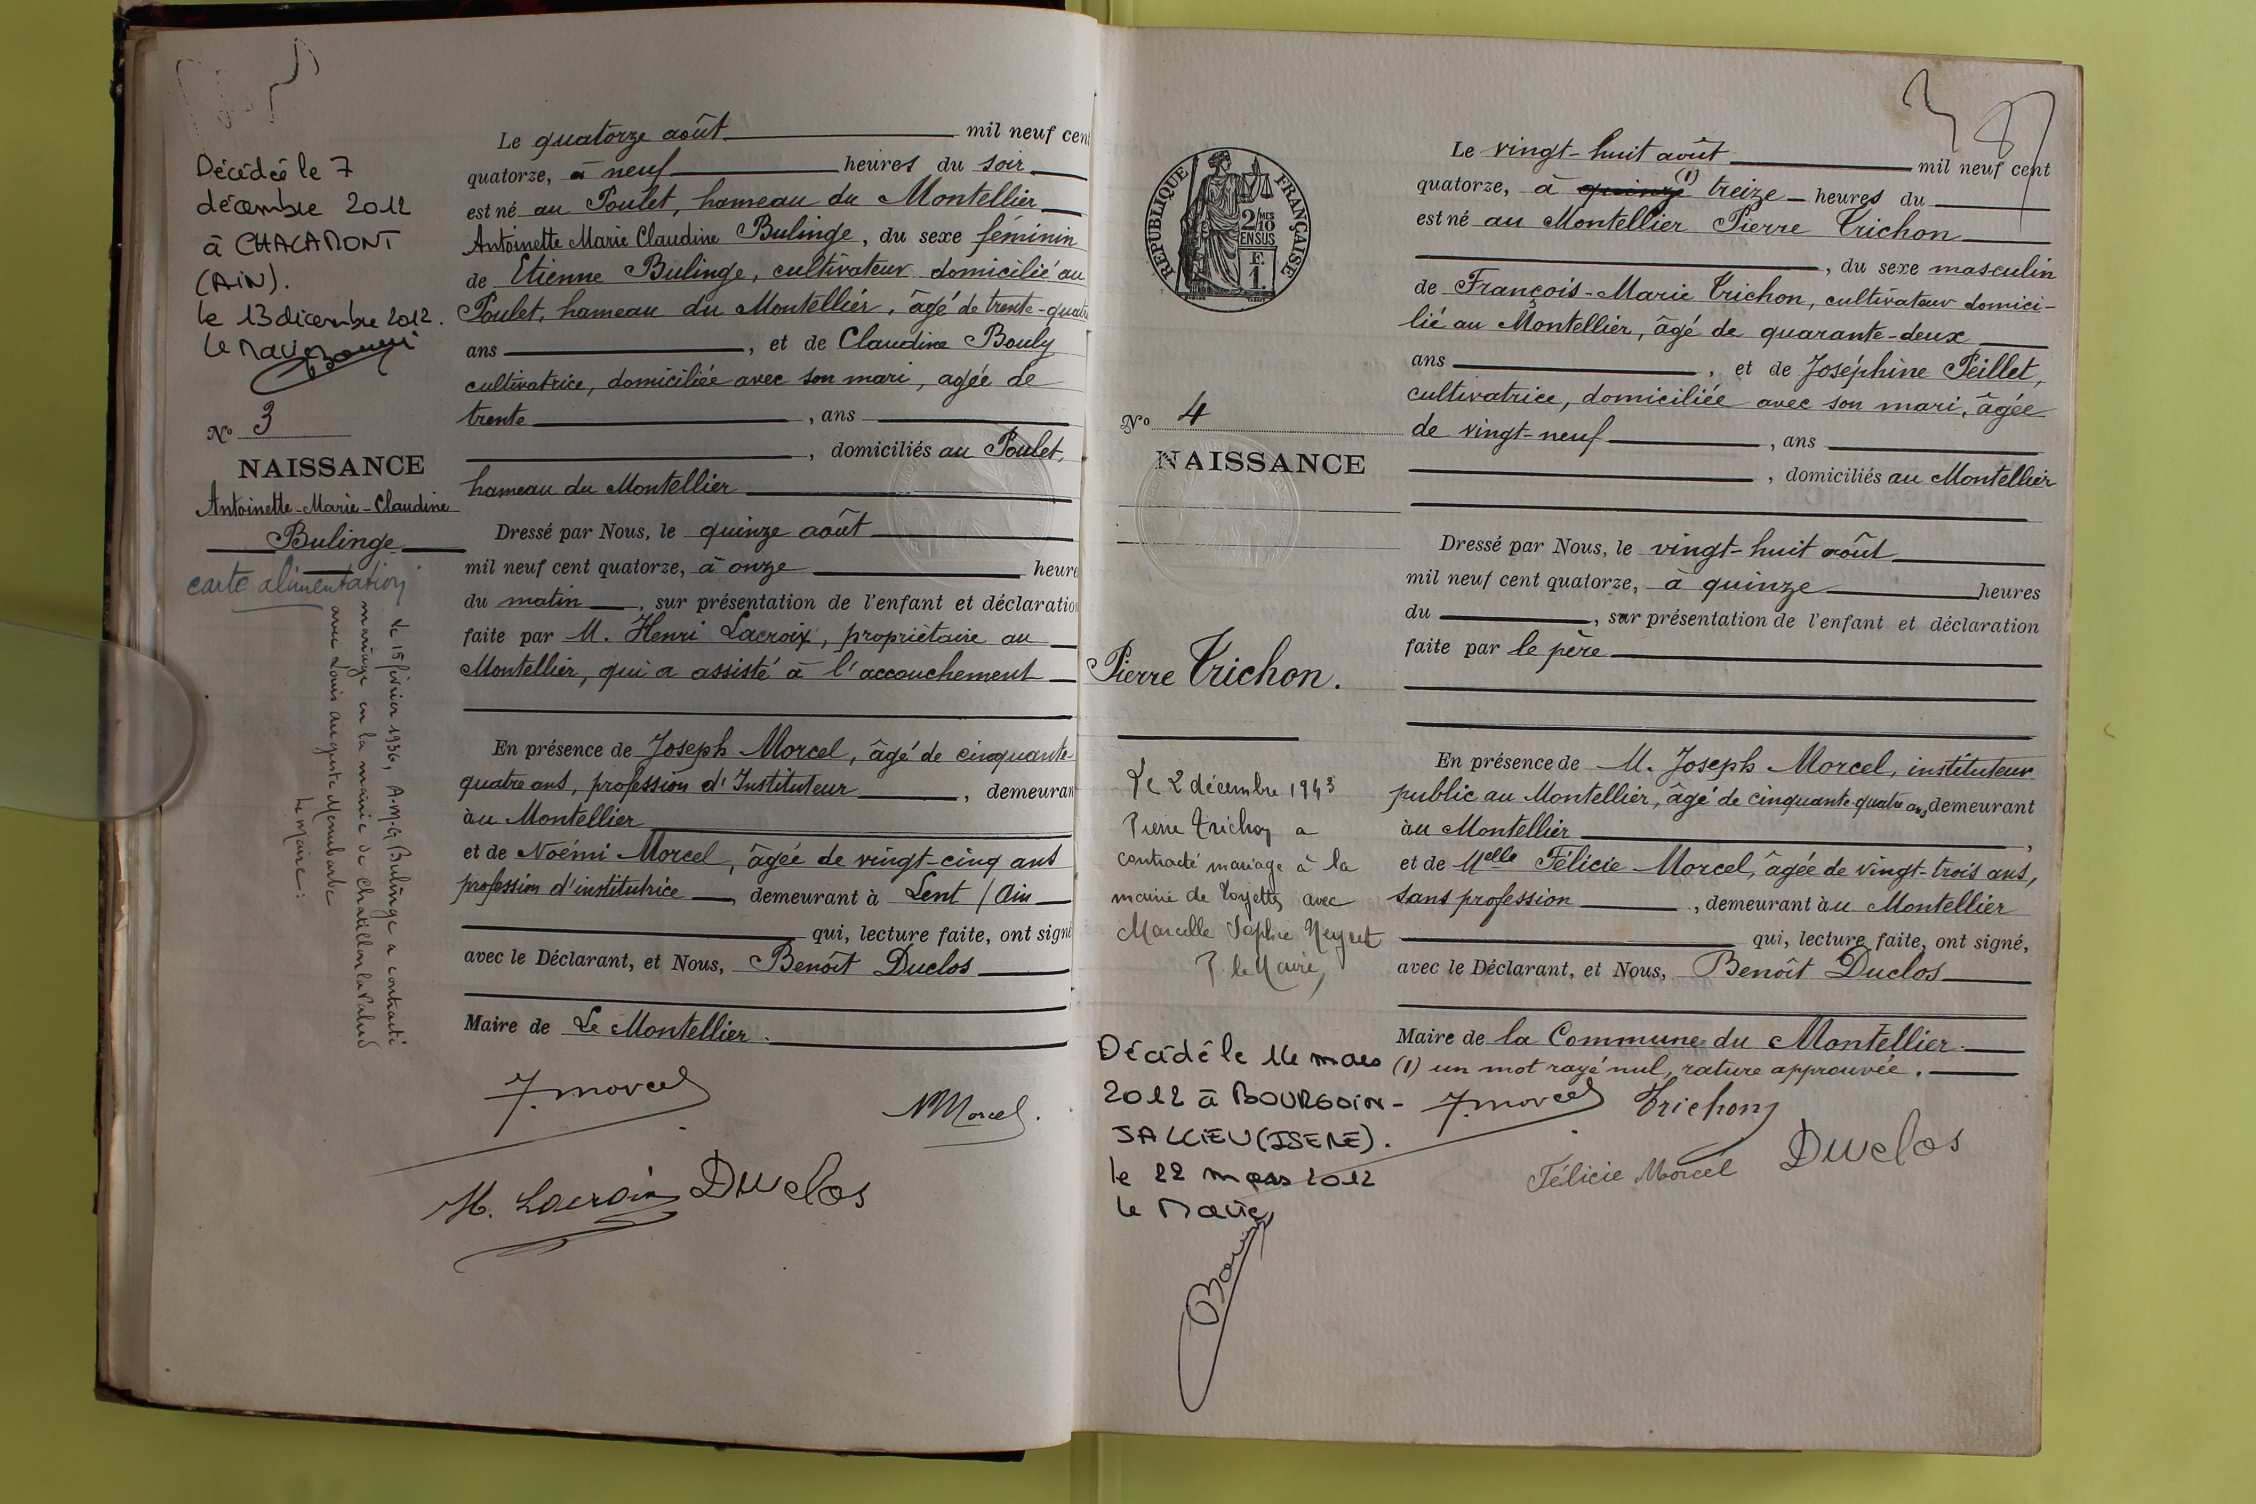 Décédée le 7
décembre 2012
à CHALAMONT
(AIN).
le 13 décembre 2012.
Le Maire
No 3
NAISSANCE
Antoinette-Marie-Claudine
Bulinge
carte alimentation
Le 15 février 1936, A.M.C. Bulinge a contracté
mariage en la mairie de Chatillon la Palud
avec Louis Auguste Monbarbe
Le Maire :
Le quatorze août mil neuf cent
quatorze, à neuf heures du soir
est né au Poulet, hameau du Montellier
Antoinette Marie Claudine Bulinge, du sexe féminin
de Etienne Bulinge, cultivateur domicilié au
Poulet, hameau du Montellier, âgé de trente-quatre
ans, et de Claudine Bouly
cultivatrice, domiciliée avec son mari, agée de
trente, ans
, domiciliés au Poulet,
hameau du Montellier
Dressé par Nous, le quinze août
mil neuf cent quatorze, à onze heure
du matin, sur présentation de l'enfant et déclaration
faite par M. Henri Lacroix, propriétaire au
Montellier, qui a assisté à l'accouchement
En présence de Joseph Morcel, âgé de cinquante-
quatre ans, profession d'Instituteur, demeuran
àu Montellier
et de Noémi Morcel, âgée de vingt-cinq ans
profession d'institutrice, demeurant à Lent / Ain
qui, lecture faite, ont signé
avec le Déclarant, et Nous, Benoît Duclos
Maire de Le Montellier.
J. Morcel
N Morcel.
H. Lacroix Duclos
RÉPUBLIQUE FRANÇAISE
2/10 MES
EN SUS
F.
1.
No 4
NAISSANCE
Pierre Trichon.
Le 2 décembre 1943
Pierre Trichon a
contracté mariage à la
mairie de Loyettes avec
Marcelle Sophie Neyret
P. le Maire,
Décédé le 14 mars
2012 à BOURGOIN-
JALLIEU (ISERE).
le 22 mars 2012
Le Maire,
Le vingt-huit août mil neuf cent
quatorze, à quinze (1) treize heures du
est né au Montellier Pierre Trichon
, du sexe masculin
de François-Marie Trichon, cultivateur domici-
lié au Montellier, âgé de quarante-deux
ans, et de Joséphine Peillet,
cultivatrice, domiciliée avec son mari, âgée
de vingt-neuf, ans
, domiciliés au Montellier
Dressé par Nous, le vingt-huit août
mil neuf cent quatorze, à quinze heures
du, sur présentation de l'enfant et déclaration
faite par le père
En présence de M. Joseph Morcel, instituteur
public au Montellier, âgé de cinquante-quatre ans, demeurant
àu Montellier,
et de Melle Félicie Morcel, âgée de vingt-trois ans,
sans profession, demeurant àu Montellier
qui, lecture faite, ont signé,
avec le Déclarant, et Nous, Benoît Duclos
Maire de la Commune du Montellier.
(1) un mot rayé nul, rature approuvée.
J. Morcel Trichon
Félicie Morcel Duclos